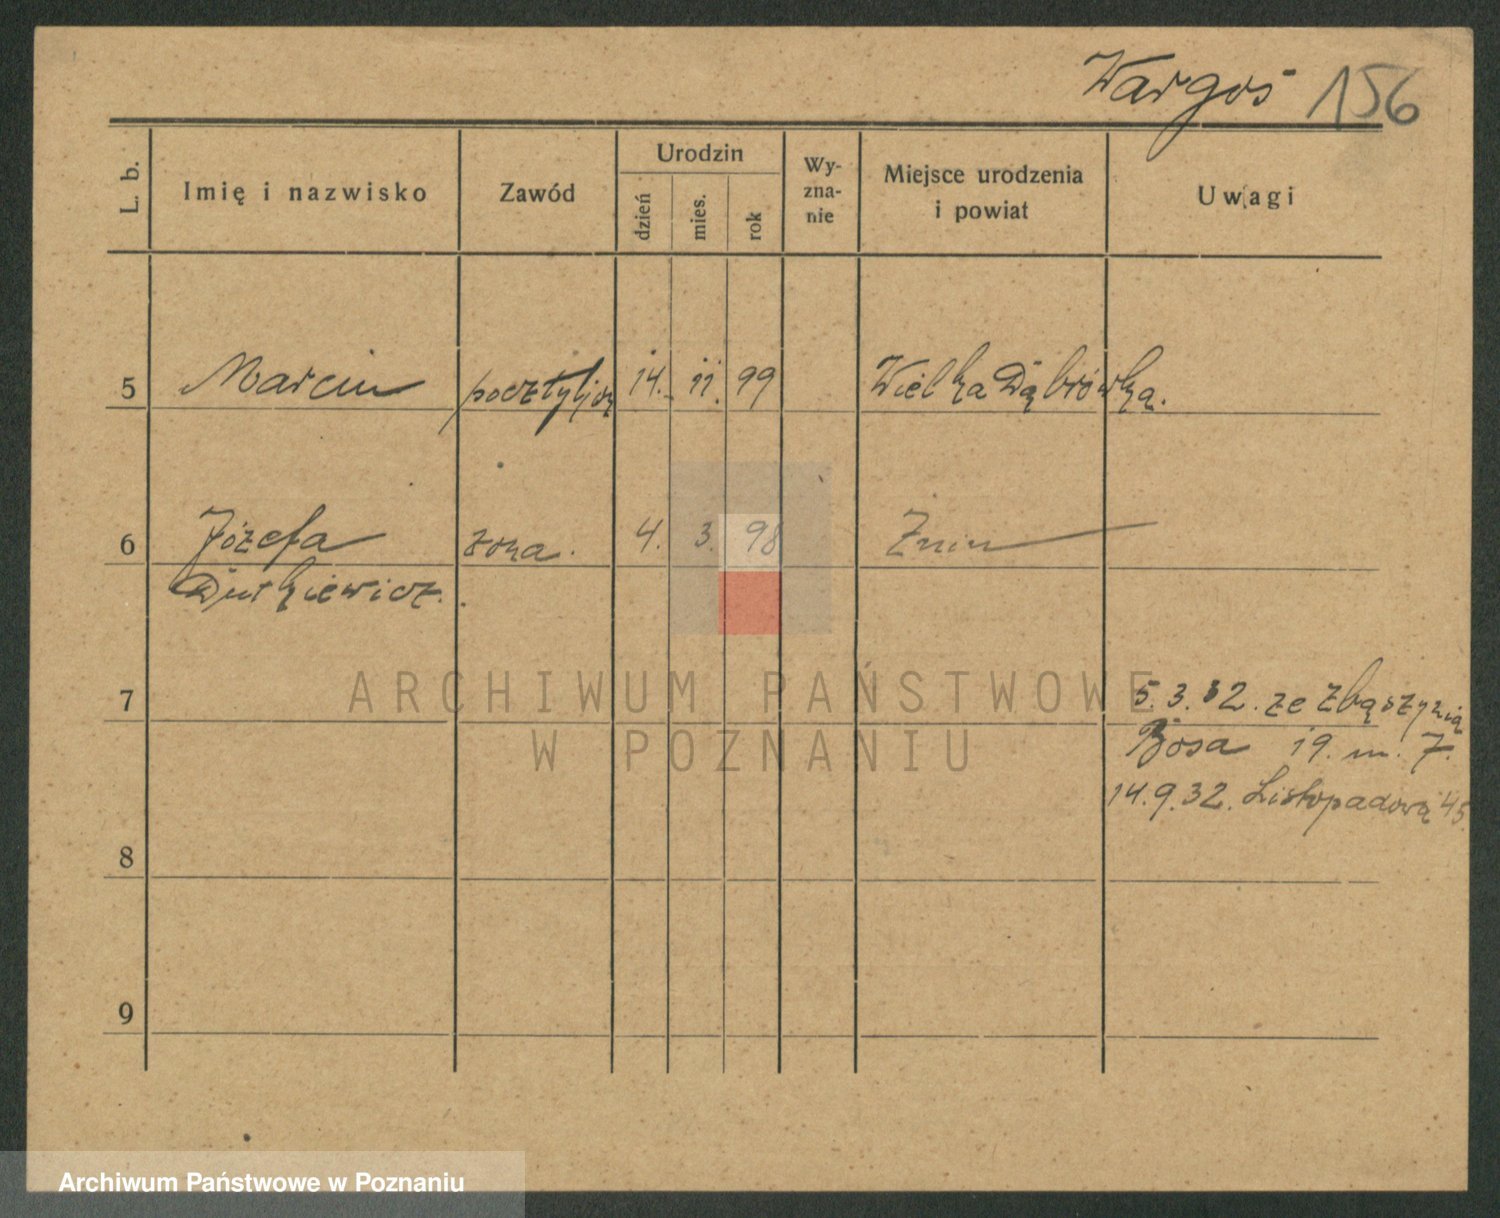 Wargoś 156
L. b. Imię i nazwisko Zawód Urodzin dzień mies. rok Wy-zna-nie Miejsce urodzenia i powiat Uwagi
5 Marcin pocztyljon 14. 11. 99 Wielka Dąbrówka.
6 Józefa żona. 4. 3. 98 Żnin
Dutkiewicz.
7 5.3.32. ze Zbąszynia
Bosa 19. m. 7.
14.9.32. Listopadowa 45.
8
9
ARCHIWUM PAŃSTWOWE
W POZNANIU
Archiwum Państwowe w Poznaniu